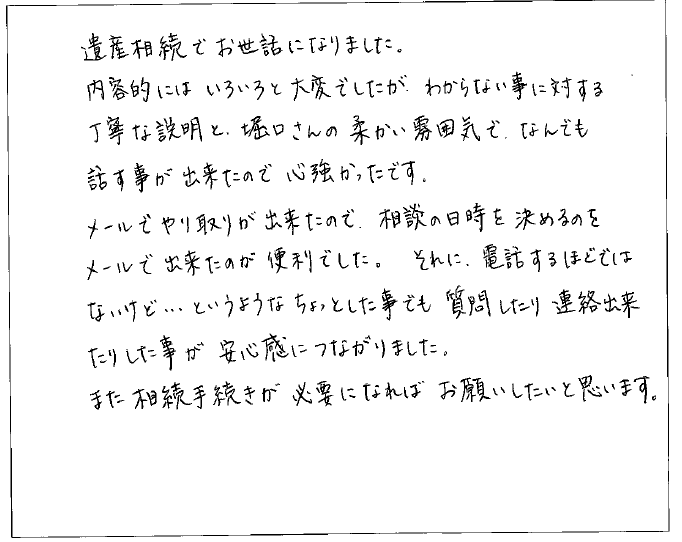 遺産相続でお世話になりました。
内容的にはいろいろと大変でしたが、わからない事に対する
丁寧な説明と、堀口さんの柔かい雰囲気で、なんでも
話す事が出来たので心強かったです。
メールでやり取りが出来たので、相談の日時を決めるのを
メールで出来たのが便利でした。それに、電話するほどでは
ないけど…というようなちょっとした事でも質問したり連絡出来
たりした事が安心感につながりました。
また相続手続きが必要になればお願いしたいと思います。